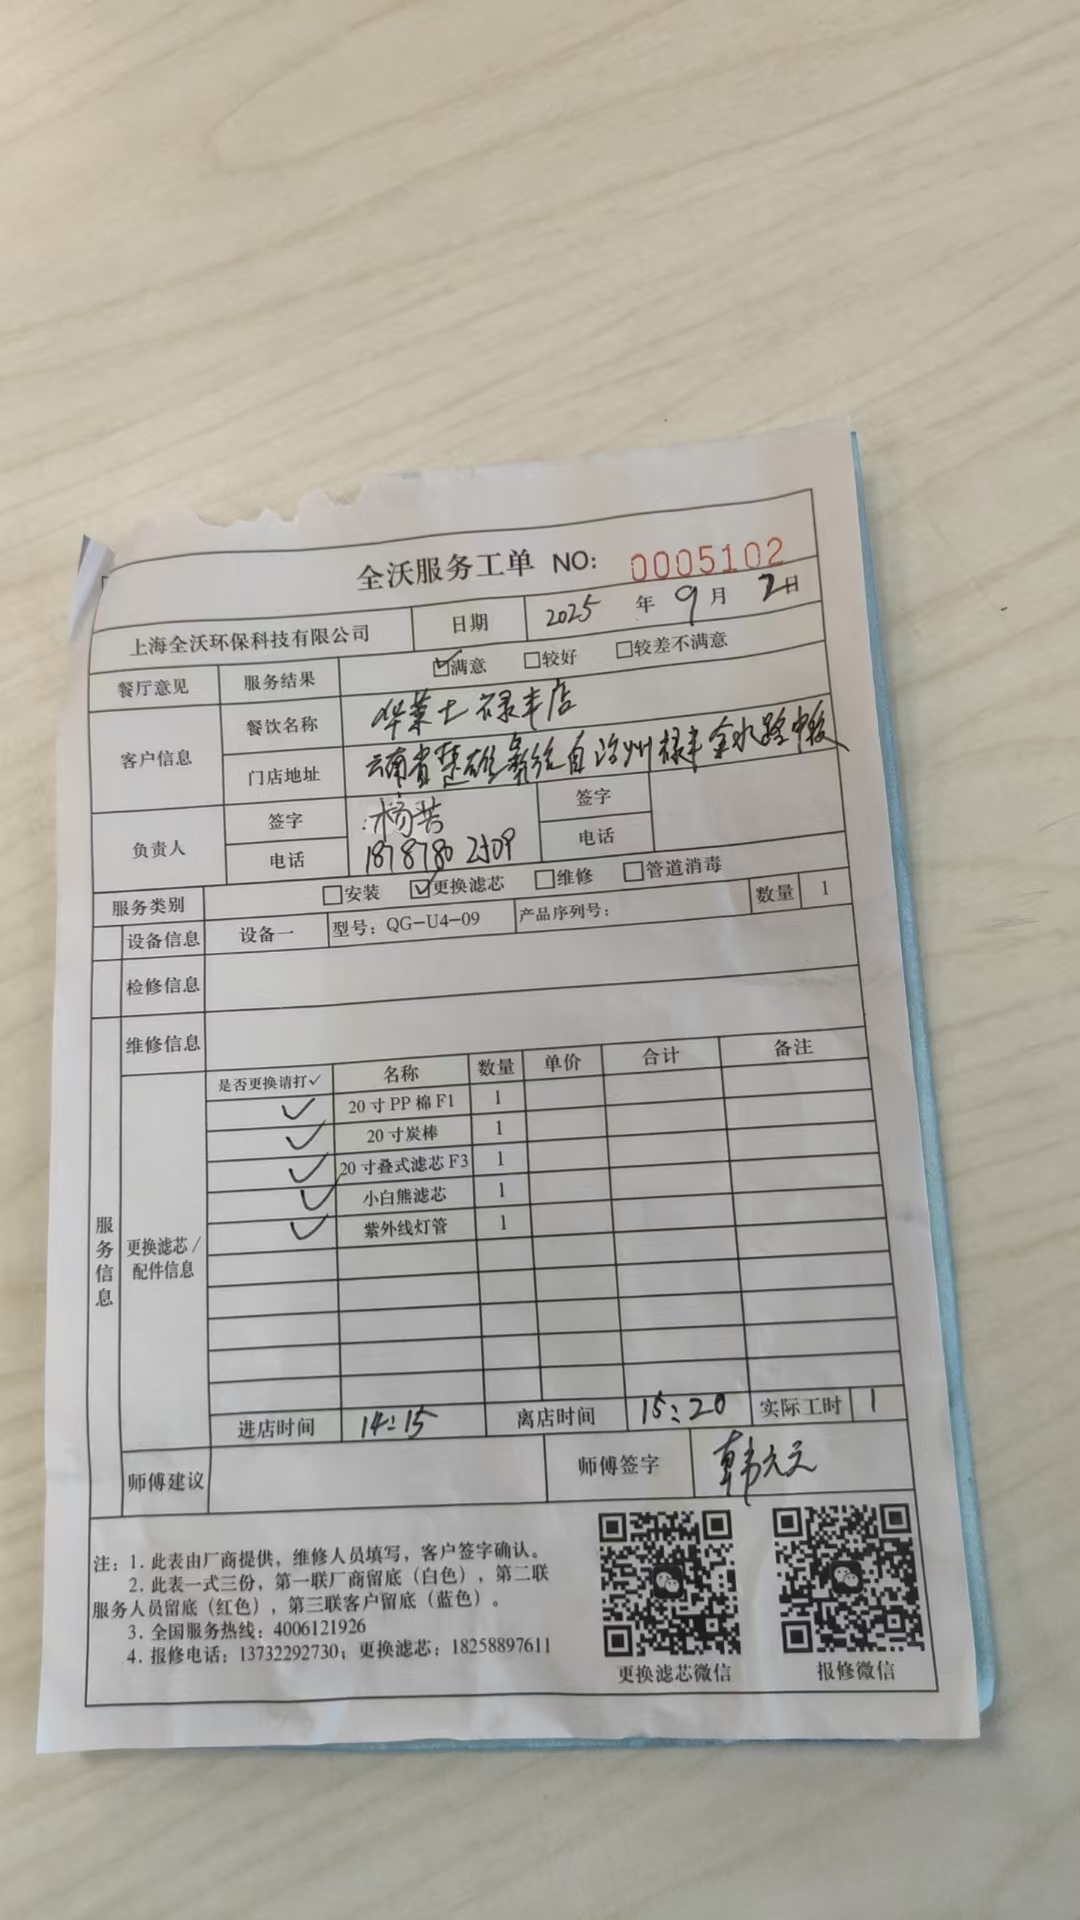 全沃服务工单 NO: 0005102
上海全沃环保科技有限公司 日期 2025 年 9 月 2 日
餐厅意见 服务结果 ☑满意 □较好 □较差不满意
客户信息 餐饮名称 华莱士禄丰店
门店地址 云南省楚雄彝族自治州禄丰金水路中段
负责人 签字 杨 签字
电话 18787802509 电话
服务类别 □安装 ☑更换滤芯 □维修 □管道消毒
设备信息 设备一 型号：QG-U4-09 产品序列号： 数量 1
检修信息
维修信息
服务信息
更换滤芯/配件信息
是否更换请打✓ 名称 数量 单价 合计 备注
✓ 20寸PP棉F1 1
✓ 20寸炭棒 1
✓ 20寸叠式滤芯F3 1
✓ 小白熊滤芯 1
✓ 紫外线灯管 1
进店时间 14:15 离店时间 15:20 实际工时 1
师傅建议 师傅签字 韩元元
注：1. 此表由厂商提供，维修人员填写，客户签字确认。
2. 此表一式三份，第一联厂商留底（白色），第二联
服务人员留底（红色），第三联客户留底（蓝色）。
3. 全国服务热线：4006121926
4. 报修电话：13732292730；更换滤芯：18258897611
更换滤芯微信 报修微信